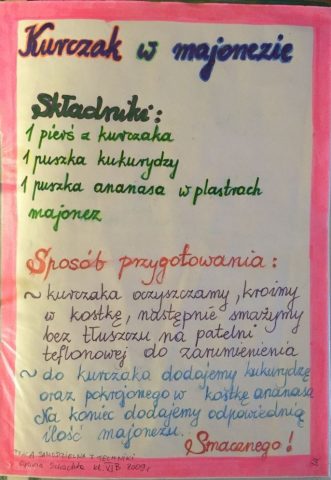 Kurczak w majonezie
Składniki:
1 pierś z kurczaka
1 puszka kukurydzy
1 puszka ananasa w plastrach
majonez
Sposób przygotowania:
~ kurczaka oczyszczamy, kroimy
w kostkę, następnie smażymy
bez tłuszczu na patelni
teflonowej do zarumienienia
~ do kurczaka dodajemy kukurydzę
oraz pokrojonego w kostkę ananasa
Na koniec dodajemy odpowiednią
ilość majonezu.
Smacznego!
SAMODZIELNA Z TECHNIKI
kl. VI B 2009r.